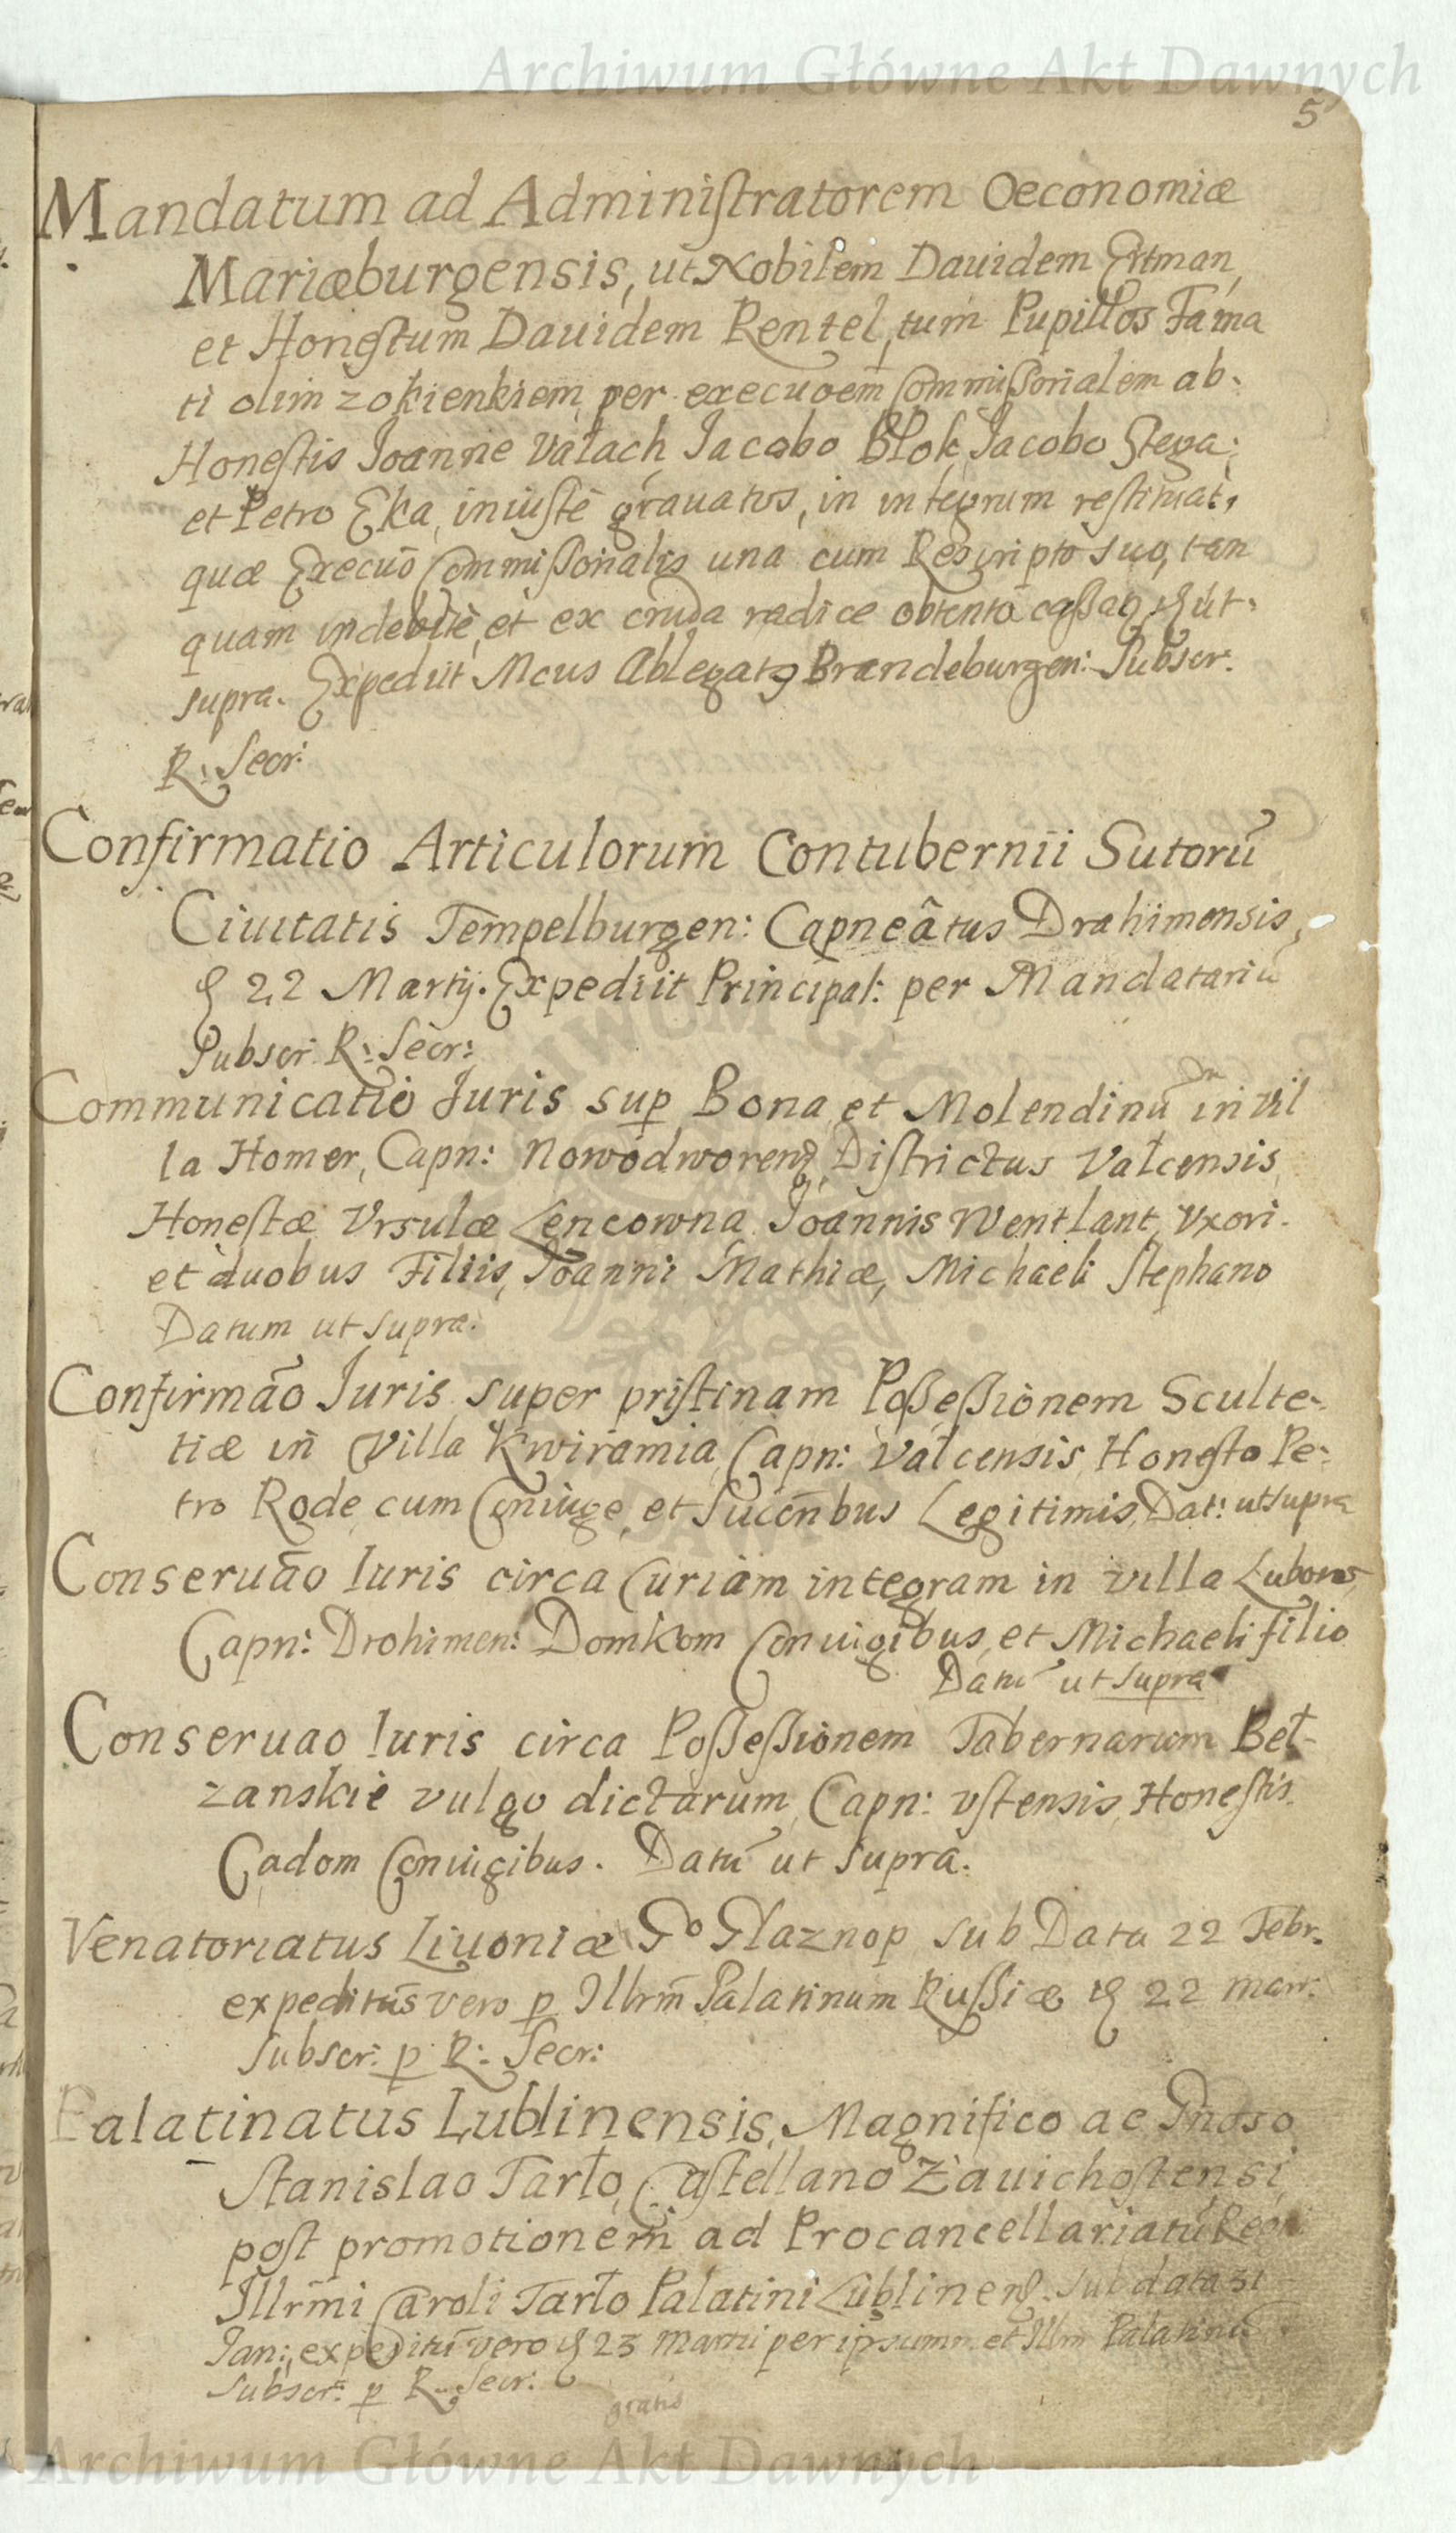 Archiwum Główne Akt Dawnych
5
Mandatum ad Administratorem Oeconomiæ
Mariæburgensis, ut Nobilem Dauidem Ertman,
et Honestum Dauidem Rentel, tum Pupillos Fama
ti olim zokienkiem per execuoem Commissorialem ab
Honestis Joanne Vałach, Jacobo Blok, Jacobo Stega,
et Petro Eka, iniustè grauatos, in integrum restituat,
quæ Execuo Commissorialis una cum Rescripto suo, tan
quam indebitè, et ex cruda radice obtento cassaq
supra. Expediit Mcus Ablegatq Brandeburgen: Subscr.
R: Secr:
Confirmatio Articulorum Contubernii Sutorū
Ciuitatis Tempelburgen: Capneâtus Drahimensis,
22 Martij. Expediit Principal: per Mandatariū
Subscr. R: Secr:
Communicatio Juris sup Bona et Molendinū in vil
la Homer, Capn: Nowodworen Districtus Vałcensis,
Honestæ Vrsulæ Lencowna Joannis Wentlant, Vxori
et duobus Filiis, Joanni Mathiæ, Michaeli Stephano
Datum ut supra.
Confirmāo Juris super pristinam Possessionem Sculte-
tiæ in Villa Kwiramia, Capn: Vałcensis, Honesto Pe-
tro Rode, cum Coniuge, et Succēnbus Legitimis, Dat: ut supra
Conseruāo Iuris circa Curiam integram in villa
Capn: Drohimen: Domkom Coniugibus, et Michaeli filio
Datū ut supra
Conseruao Iuris circa Possessionem Tabernarum Beł-
zanskie vulgo dictarum, Capn: Vstensis, Honestis
Gadom Coniugibus. Datū ut supra.
Venatoriatus Liuoniæ Go Głaznop sub Data 22 Febr.
expeditus vero p Illrm̄ Palatinum Russiæ 22 Mart:
Subscr: p R: Secr:
Palatinatus Lublinensis, Magnifico ac Gnoso
Stanislao Tarło, Castellano Zauichostensi,
post promotionem ad Procancellariatū Regni
Illrm̄i Caroli Tarło Palatini Lublinen sub data 31
Jan: expeditū vero 23 Martii per ipsum et Illrm Palatinū
Subscr: p R: Secr:
gratis
Archiwum Główne Akt Dawnych